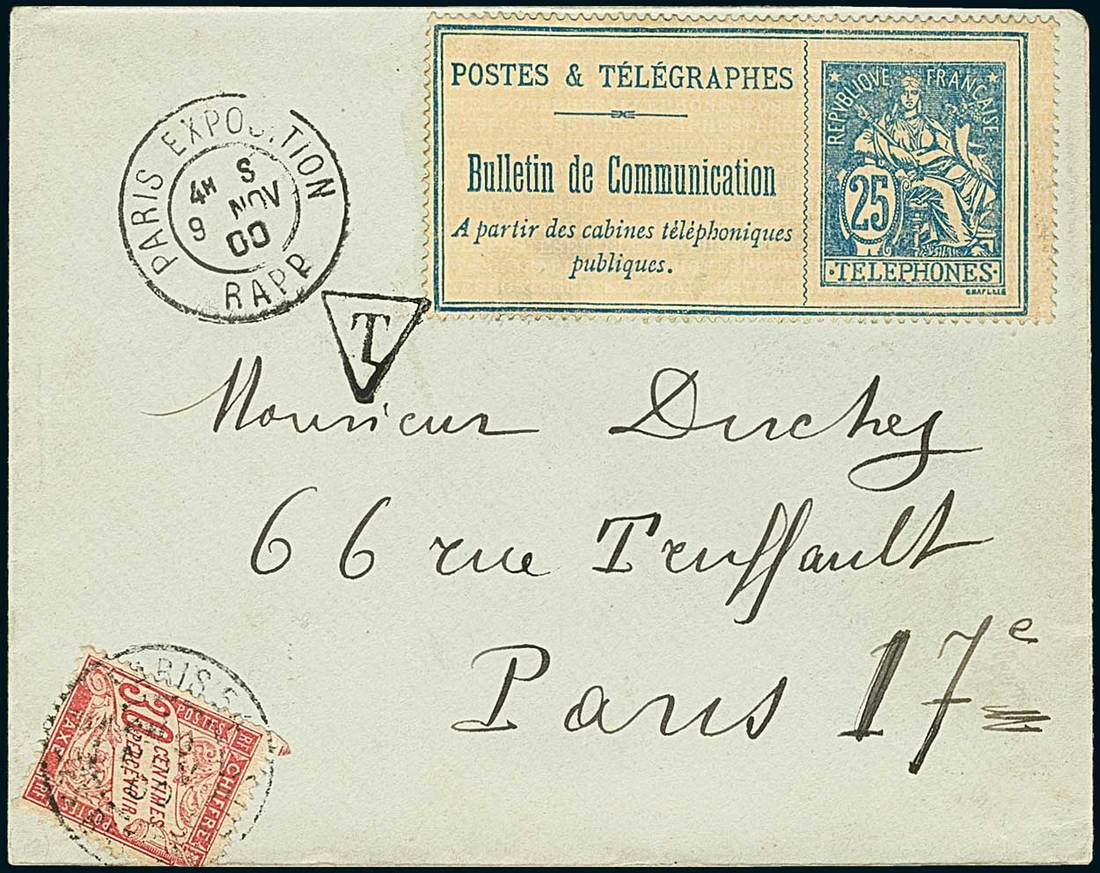 POSTES & TÉLÉGRAPHES
Bulletin de Communication
A partir des cabines téléphoniques
publiques.
REPVBLIQVE FRANCAISE
25
TELEPHONES
CHAPLAIN
PARIS EXPOSITION
4H S
9 NOV
00
RAPP
T
Monsieur Duchey
66 rue Truffault
Paris 17e
RF POSTES RF
CHIFFRE TAXE
30
CENTIMES
À
PERCEVOIR
PARIS